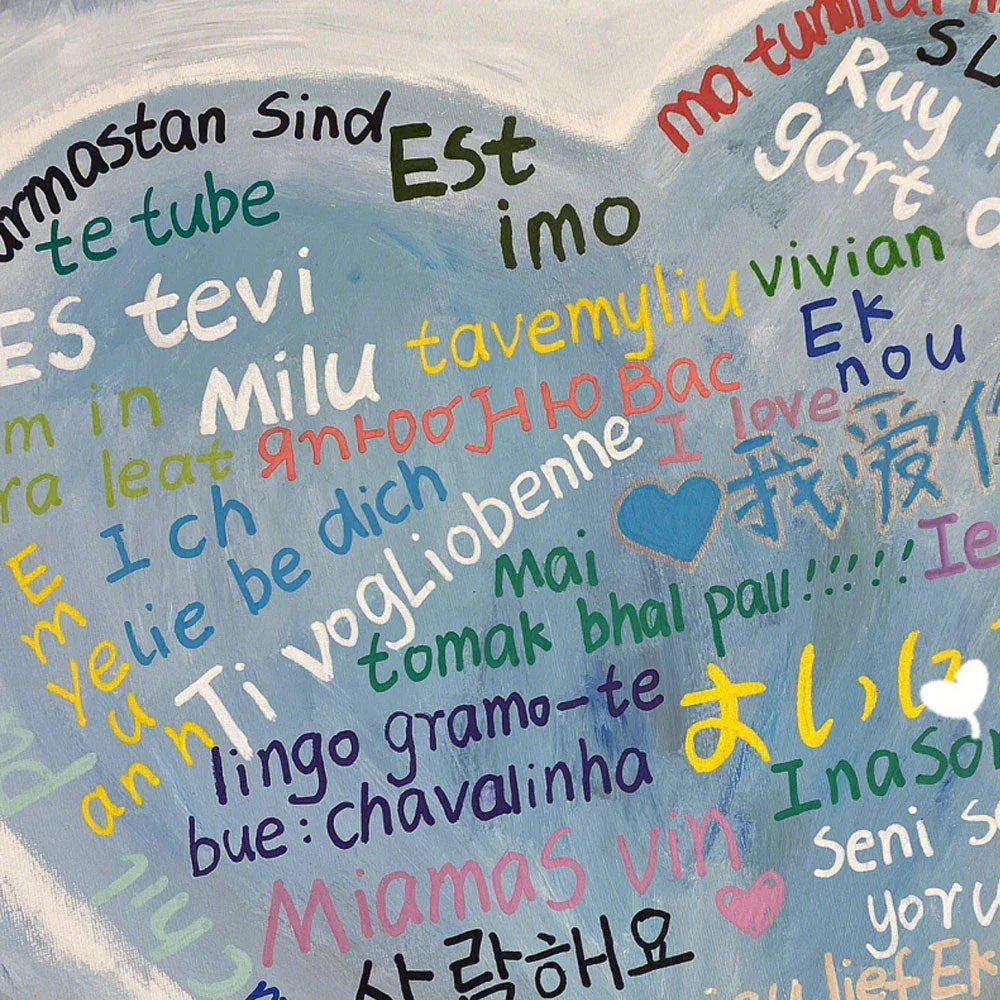 armastan Sind
te tube
ES tevi
Milu
m in
ra leat
Est
imo
ma tun
Ruy
gart
SL
tavemyliu
vivian
Ek
nou
Япюо Вас
I love
我爱你
I ch
lie be dich
Ti vogLiobenne
E
m
ye
u
an n
Mai
tomak bhal pall!!!!!!
Ie
lingo gramo-te
bue: chavalinha
InaSon
Miamas vin
seni s
yoru
사랑해요
lief Ek